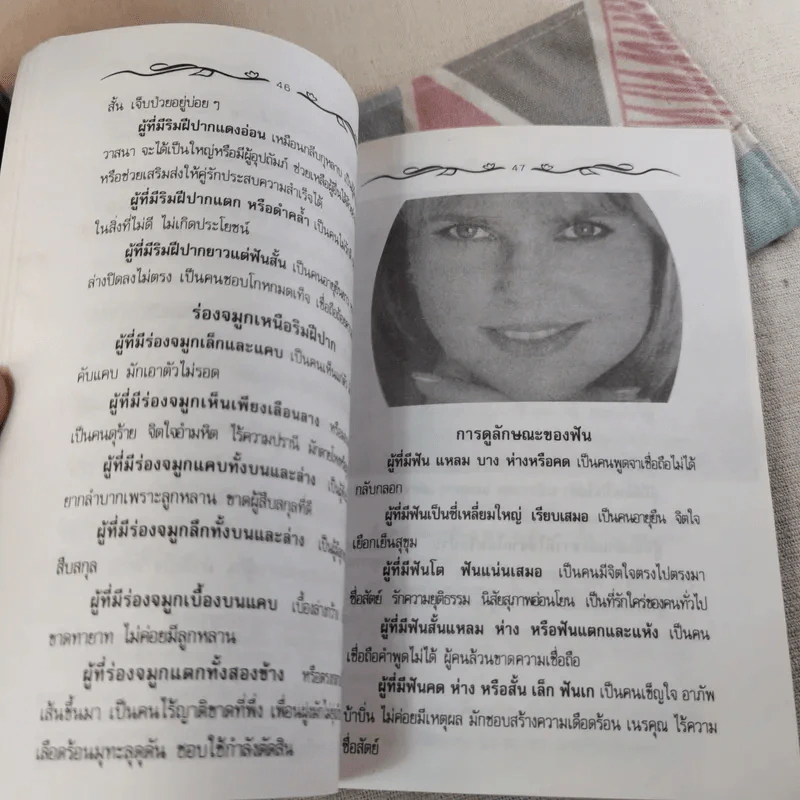 46
สั้น เจ็บป่วยอยู่บ่อย ๆ
ผู้ที่มีริมฝีปากแดงอ่อน เหมือนกลีบกุหลาบ
วาสนา จะได้เป็นใหญ่หรือมีผู้อุปถัมภ์ ช่วยเหลือ
หรือช่วยเสริมส่งให้คู่รักประสบความสำเร็จได้
ผู้ที่มีริมฝีปากแตก หรือดำคล้ำ เป็นคน
ในสิ่งที่ไม่ดี ไม่เกิดประโยชน์
ผู้ที่มีริมฝีปากยาวแต่ฟันสั้น เป็นคนอายุยืน
ล่างปิดลงไม่ตรง เป็นคนชอบโกหกมดเท็จ
ร่องจมูกเหนือริมฝีปาก
ผู้ที่มีร่องจมูกเล็กและแคบ เป็นคนเห็น
คับแคบ มักเอาตัวไม่รอด
ผู้ที่มีร่องจมูกเห็นเพียงเลือนลาง
เป็นคนดุร้าย จิตใจอำมหิต ไร้ความปรานี
ผู้ที่มีร่องจมูกแคบทั้งบนและล่าง
ยากลำบากเพราะลูกหลาน ขาดผู้สืบสกุลที่ดี
ผู้ที่มีร่องจมูกลึกทั้งบนและล่าง
สืบสกุล
ผู้ที่มีร่องจมูกเบื้องบนแคบ
ขาดทายาท ไม่ค่อยมีลูกหลาน
ผู้ที่ร่องจมูกแตกทั้งสองข้าง
เส้นขึ้นมา เป็นคนไร้ญาติขาดที่พึ่ง
เลือดร้อนมุทะลุดุดัน ชอบใช้กำลังตัดสิน
47
การดูลักษณะของฟัน
ผู้ที่มีฟัน แหลม บาง ห่างหรือคด เป็นคนพูดจาเชื่อถือไม่ได้
กลับกลอก
ผู้ที่มีฟันเป็นซี่เหลี่ยมใหญ่ เรียบเสมอ เป็นคนอายุยืน จิตใจ
เยือกเย็นสุขุม
ผู้ที่มีฟันโต ฟันแน่นเสมอ เป็นคนมีจิตใจตรงไปตรงมา
ซื่อสัตย์ รักความยุติธรรม นิสัยสุภาพอ่อนโยน เป็นที่รักใคร่ของคนทั่วไป
ผู้ที่มีฟันสั้นแหลม ห่าง หรือฟันแตกและแห้ง เป็นคน
เชื่อถือคำพูดไม่ได้ ผู้คนล้วนขาดความเชื่อถือ
ผู้ที่มีฟันคด ห่าง หรือสั้น เล็ก ฟันเก เป็นคนเข็ญใจ อาภัพ
บ้าบิ่น ไม่ค่อยมีเหตุผล มักชอบสร้างความเดือดร้อน เนรคุณ ไร้ความ
ซื่อสัตย์